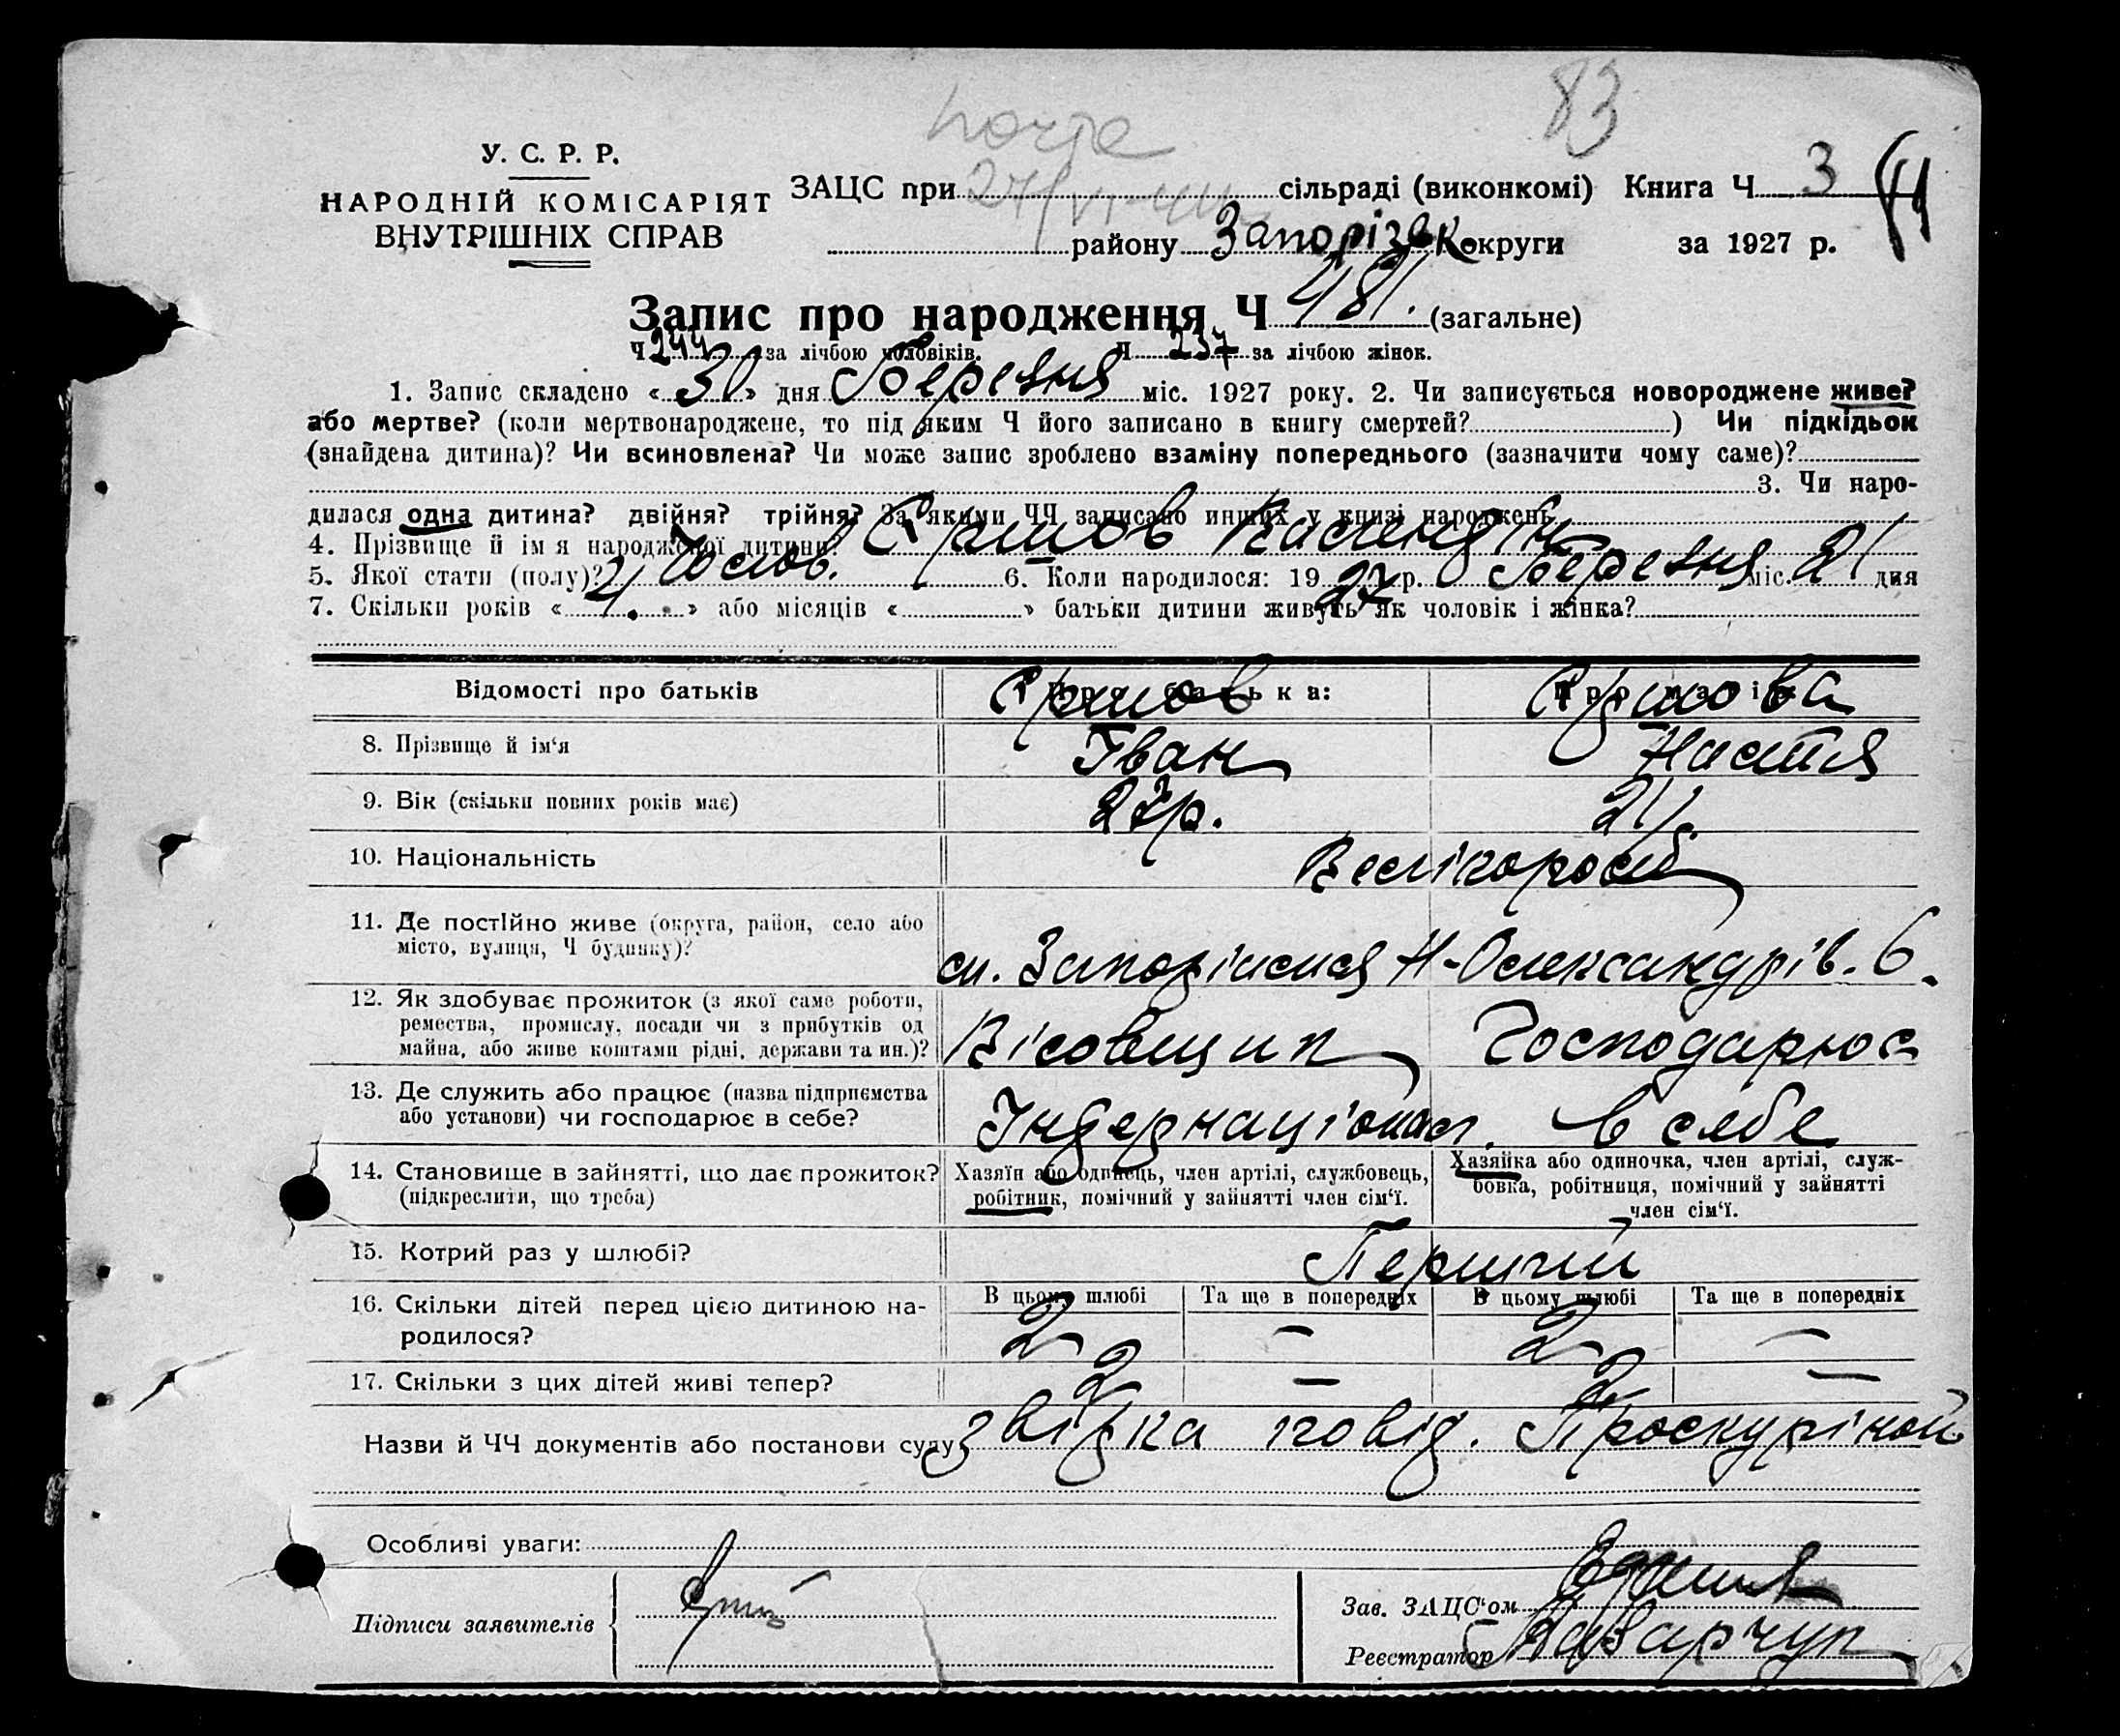 83
У. С. Р. Р.
НАРОДНІЙ КОМІСАРІЯТ
ВНУТРІШНІХ СПРАВ
ЗАЦС при сільраді (виконкомі) Книга Ч 3
району Запорізьк округи за 1927 р.
Запис про народження Ч 481. (загальне)
Ч 244 за лічбою чоловіків. Ч 237 за лічбою жінок.
1. Запис складено «30» дня Березня міс. 1927 року. 2. Чи записується новороджене живе?
або мертве? (коли мертвонароджене, то під яким Ч його записано в книгу смертей? ) Чи підкідьок
(знайдена дитина)? Чи всиновлена? Чи може запис зроблено взаміну попереднього (зазначити чому саме)?
3. Чи наро-
дилася одна дитина? двійня? трійня? За якими ЧЧ записано инших у книзі народжень
4. Прізвище й імя народженої дитини? Єршов Валентін
5. Якої стати (полу)? Чолов. 6. Коли народилося: 19 27 р. Березня міс. 21 дня
7. Скільки років «4.» або місяців « » батьки дитини живуть як чоловік і жінка?
Відомості про батьків Про батька: Про матір
8. Прізвище й ім‘я Єршов Іван Єршова Настя
9. Вік (скільки повних років має) 27р. 21р.
10. Національність Велікорось
11. Де постійно живе (округа, район, село або
місто, вулиця, Ч будинку)?
ст. Запоріжжя Н-Олександрів. 6.
12. Як здобуває прожиток (з якої саме роботи,
ремества, промислу, посади чи з прибутків од
майна, або живе коштами рідні, держави та ин.)?
Вісовщик Господарює
13. Де служить або працює (назва підприємства
або установи) чи господарює в себе?
Індернаціонал. в себе
14. Становище в зайнятті, що дає прожиток?
(підкреслити, що треба)
Хазяїн або одинець, член артілі, службовець,
робітник, помічний у зайнятті член сім‘ї.
Хазяйка або одиночка, член артілі, служ-
бовка, робітниця, помічний у зайнятті
член сім‘ї.
15. Котрий раз у шлюбі? Перший
16. Скільки дітей перед цією дитиною на-
родилося?
В цьому шлюбі Та ще в попередніх В цьому шлюбі Та ще в попередніх
2 — 2 —
17. Скільки з цих дітей живі тепер? 2 — 2 —
Назви й ЧЧ документів або постанови суду звідка повід. Проскуріной
Особливі уваги:
Підписи заявителів
Зав. ЗАЦС‘ом
Реєстратор